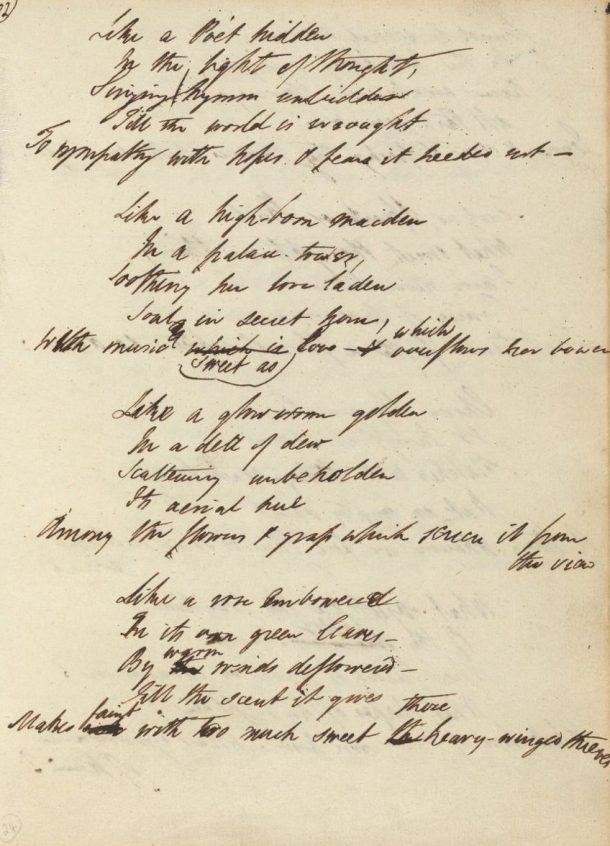 Like a Poet hidden
In the light of thought,
Singing hymns unbidden
Till the world is wrought
To sympathy with hopes & fears it heeded not —
Like a high-born maiden
In a palace tower,
Soothing her love laden
Soul in secret hour,
With music sweet as love — which overflows her bower
Like a glow worm golden
In a dell of dew
Scattering unbeholden
Its aerial hue
Among the flowers & grass which screen it from
the view
Like a rose embowered
In its own green leaves —
By warm winds deflowered —
Till the scent it gives
Makes faint with too much sweet those heavy-winged thieves
24